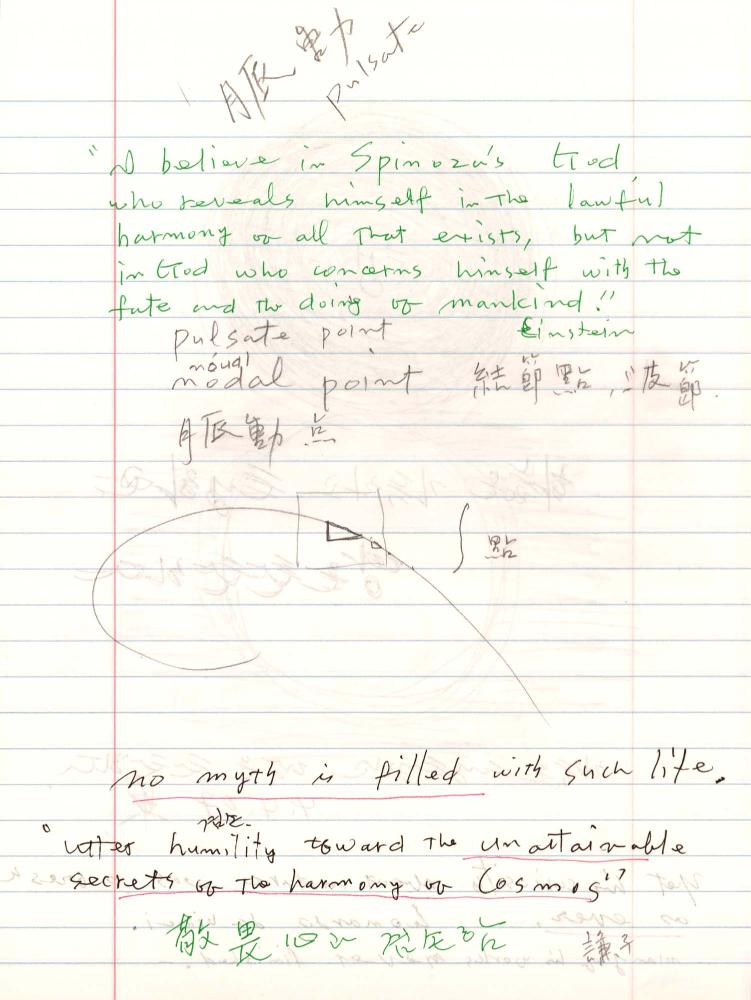 脈動
pulsate
"I believe in Spinoza's God
who reveals himself in the lawful
harmony of all that exists, but not
in God who concerns himself with the
fate and the doing of mankind!"
Einstein
pulsate point
nodal point 結節點,
脈動点
點
no myth is filled with such life.
겸도.
utter humility toward the unattainable
secrets of the harmony of Cosmos"
敬畏心과 겸도